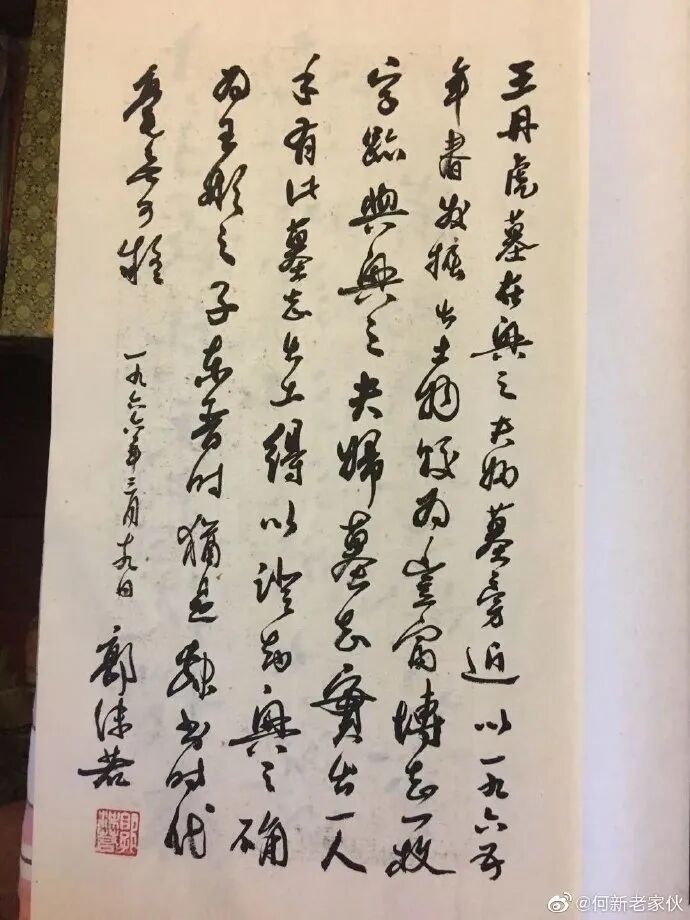 王丹虎墓在兴之夫妇墓旁近以一九六五
年春发掘出土物较为丰富塼志一枚
字迹与兴之夫妇墓志实出一人
手有此墓志出土得以证知兴之确
为王彬之子东晋时犹是隶书时代
毫无可疑
一九六六年三月十九日
郭沫若
@何新老家伙